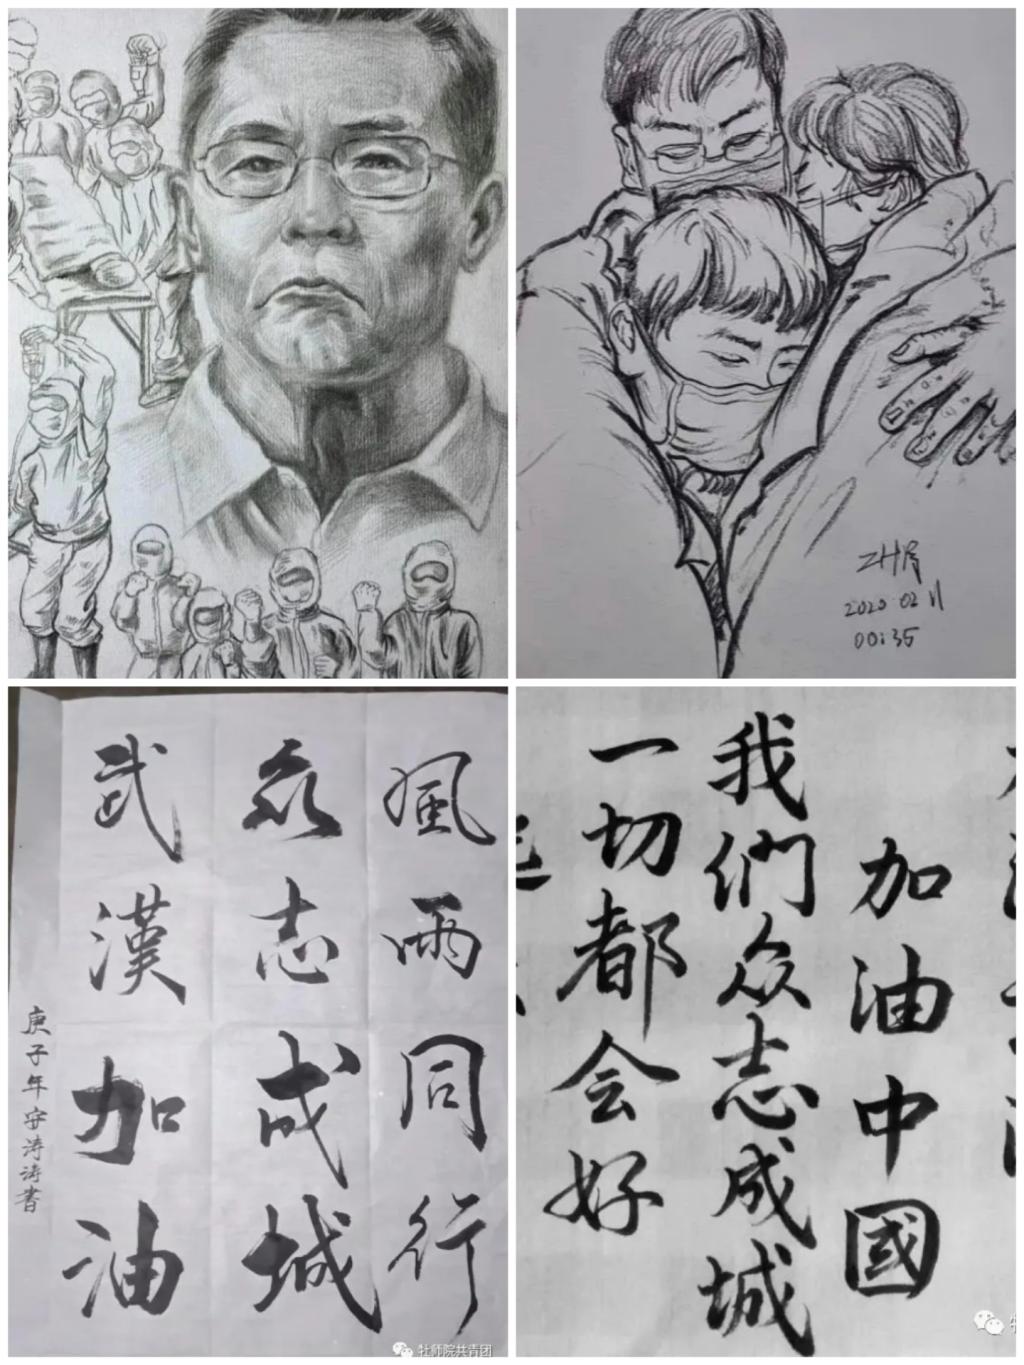 ZH房
2020.02 11
00:35
風雨同行
众志成城
武漢加油
庚子年安涛涛書
牡师院共青团
加油中國
我们众志成城
一切都会好